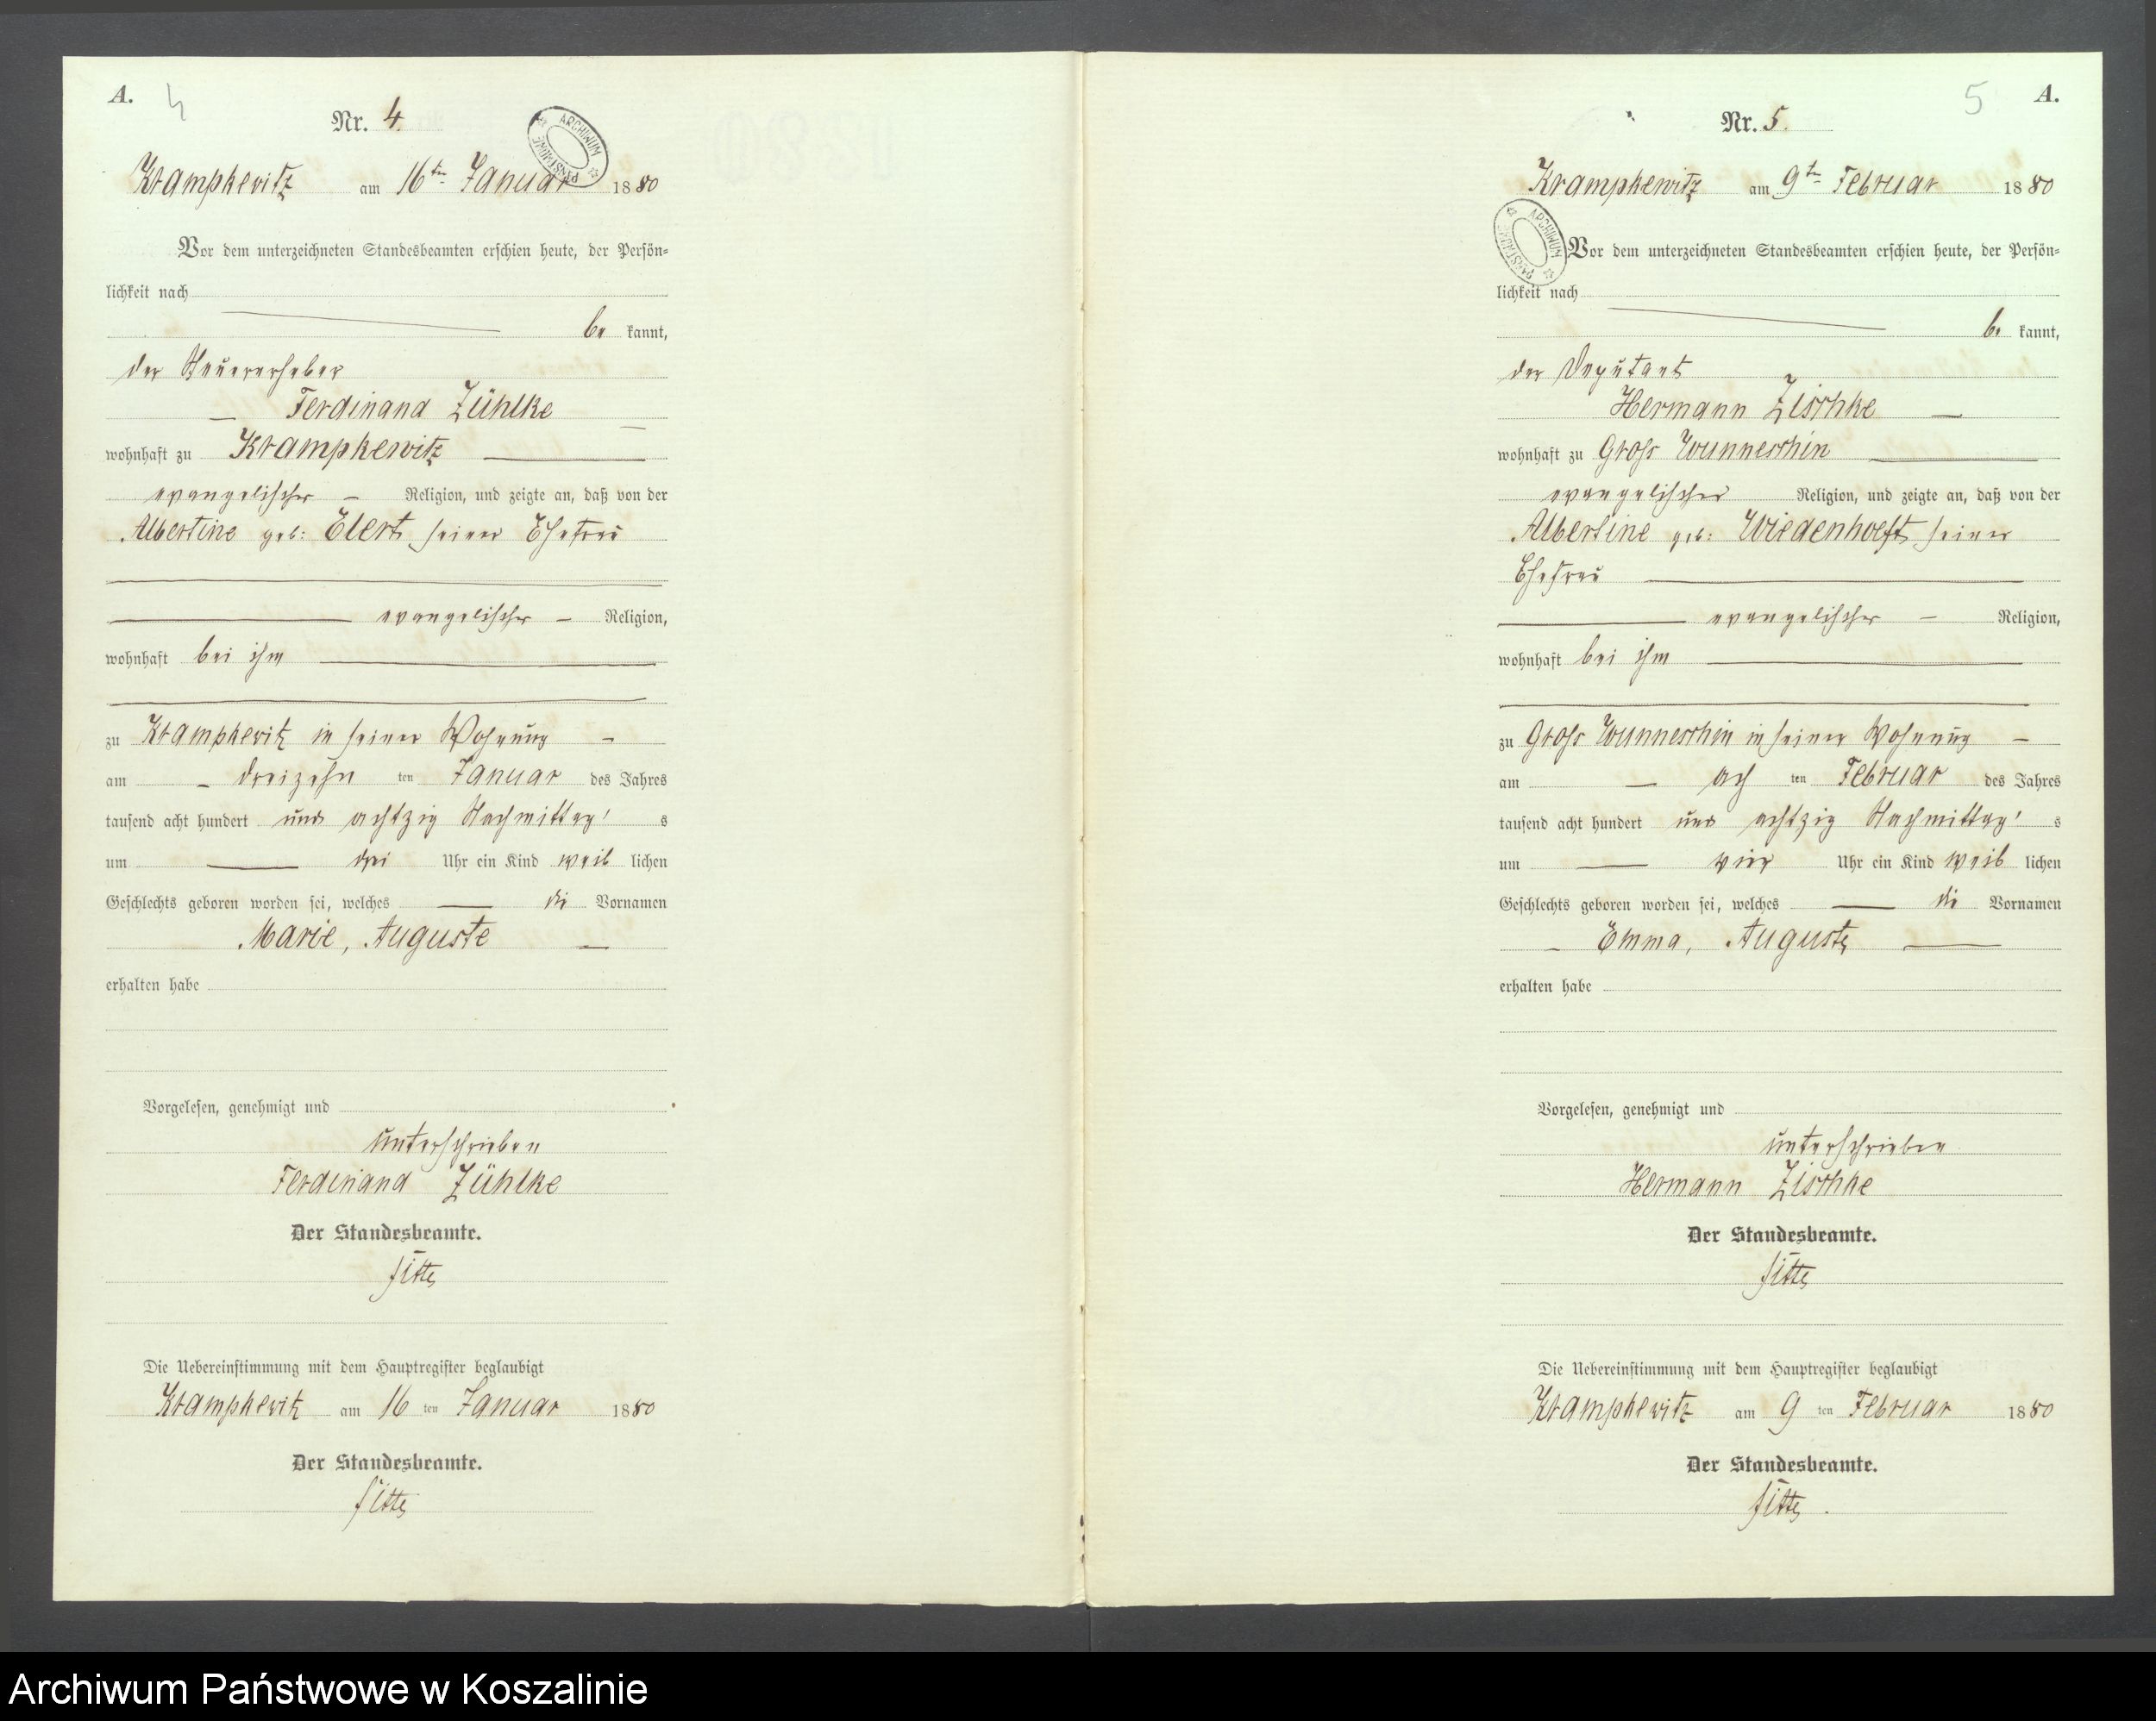 A.
4
Nr. 4.
ARCHIWUM PAŃSTWOWE
Krampkewitz am 16ten Januar 1880
Vor dem unterzeichneten Standesbeamten erschien heute, der Persön-
lichkeit nach
be kannt,
der Steuererheber
Ferdinand Zühlke
wohnhaft zu Krampkewitz
evangelischer Religion, und zeigte an, daß von der
Albertine geb: Elert seiner Ehefrau
evangelischer Religion,
wohnhaft bei ihm
zu Krampkewitz in seiner Wohnung
am dreizehn ten Januar des Jahres
tausend acht hundert und achtzig Nachmittag s
um drei Uhr ein Kind weib lichen
Geschlechts geboren worden sei, welches die Vornamen
Marie, Auguste
erhalten habe
Vorgelesen, genehmigt und
unterschrieben
Ferdinand Zühlke
Der Standesbeamte.
Die Uebereinstimmung mit dem Hauptregister beglaubigt
Krampkewitz am 16 ten Januar 1880
Der Standesbeamte.
5
A.
Nr. 5.
Krampkewitz am 9ten Februar 1880
ARCHIWUM PAŃSTWOWE
Vor dem unterzeichneten Standesbeamten erschien heute, der Persön-
lichkeit nach
be kannt,
der Deputant
Hermann Zischke
wohnhaft zu Gross Wunneschin
evangelischer Religion, und zeigte an, daß von der
Albertine geb: Wiedenhoeft seiner
Ehefrau
evangelischer Religion,
wohnhaft bei ihm
zu Gross Wunneschin in seiner Wohnung
am ach ten Februar des Jahres
tausend acht hundert und achtzig Nachmittag s
um vier Uhr ein Kind weib lichen
Geschlechts geboren worden sei, welches die Vornamen
Emma, Auguste
erhalten habe
Vorgelesen, genehmigt und
unterschrieben
Hermann Zischke
Der Standesbeamte.
Die Uebereinstimmung mit dem Hauptregister beglaubigt
Krampkewitz am 9 ten Februar 1880
Der Standesbeamte.
Archiwum Państwowe w Koszalinie